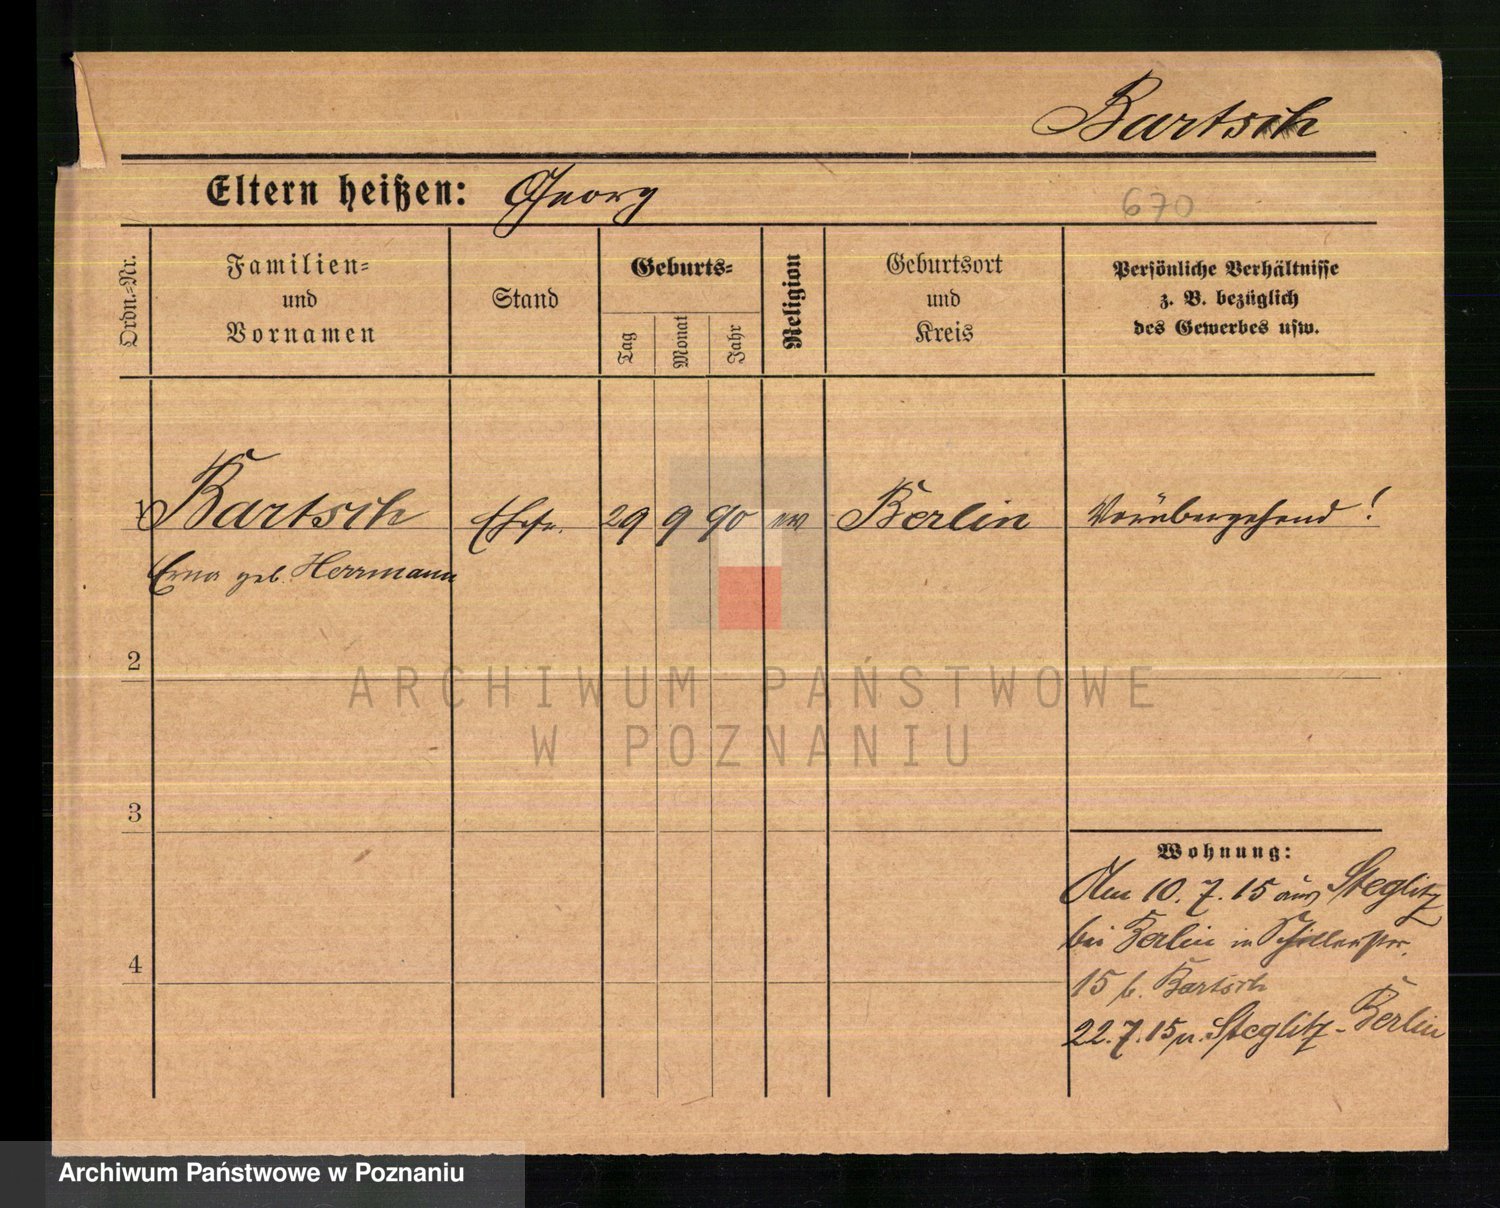 Bartsch
Eltern heißen: Georg
670
Ordn.-Nr.
Familien-
und
Vornamen
Stand
Geburts-
Tag
Monat
Jahr
Religion
Geburtsort
und
Kreis
Persönliche Verhältnisse
z. B. bezüglich
des Gewerbes usw.
1 Bartsch Ehefr. 29 9 90 ev Berlin Vorübergehend!
Erna geb. Herrmann
2
ARCHIWUM PAŃSTWOWE
W POZNANIU
3
Wohnung:
Am 10. 7. 15 aus Steglitz
bei Berlin in Schillerstr.
4
15 b. Bartsch
22. 7. 15 n. Steglitz-Berlin
Archiwum Państwowe w Poznaniu